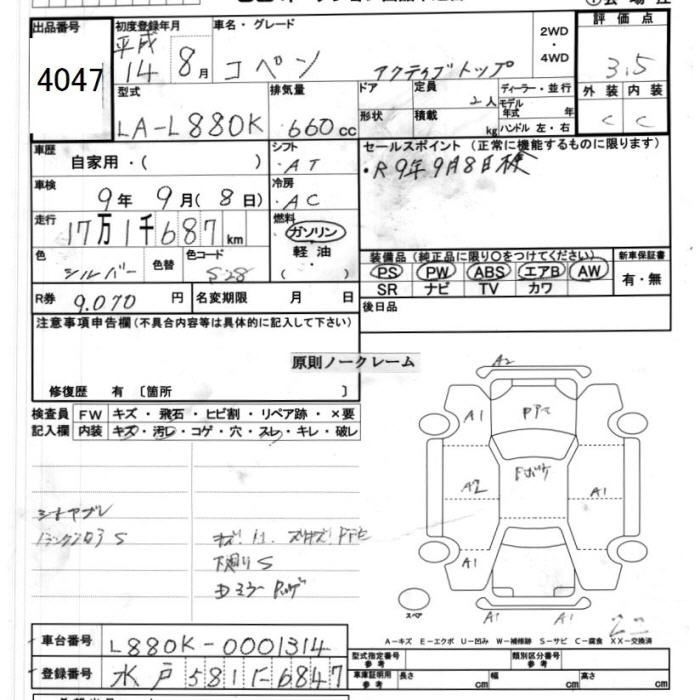 出品番号
4047
初度登録年月
平成
14 8月
車名・グレード
コペン アクティブトップ
2WD
・
4WD
評価点
3.5
外装 内装
C C
型式
LA-L880K
排気量
660cc
ドア
形状
定員
2人
積載
kg
ディーラー・並行
モデル
年式 年
ハンドル 左・右
車歴
自家用・( )
シフト
AT
車検
9年 9月(8日)
冷房
AC
走行
17万1千687km
燃料
ガソリン
軽油
( )
色
シルバー
色替
色コード
S28
R券 9,070円
名変期限 月 日
セールスポイント(正常に機能するものに限ります)
・R9年9月8日検
装備品(純正品に限り○をつけてください)
PS PW ABS エアB AW
SR ナビ TV カワ
新車保証書
有・無
後日品
注意事項申告欄(不具合内容等は具体的に記入して下さい)
修復歴 有 〔箇所 〕
原則ノークレーム
検査員
記入欄
FW キズ・飛石・ヒビ割・リペア跡・×要
内装 キズ・汚レ・コゲ・穴・スレ・キレ・破レ
下廻りS
A2
A1
A2
A1
A1
A1
A1
スペア
A-キズ E-エクボ U-凹み W-補修跡 S-サビ C-腐食 XX-交換済
車台番号 L880K-0001314
登録番号 水戸581 6847
型式指定番号
参考
類別区分番号
参考
車庫証明用
参考
長さ cm
幅 cm
高さ cm